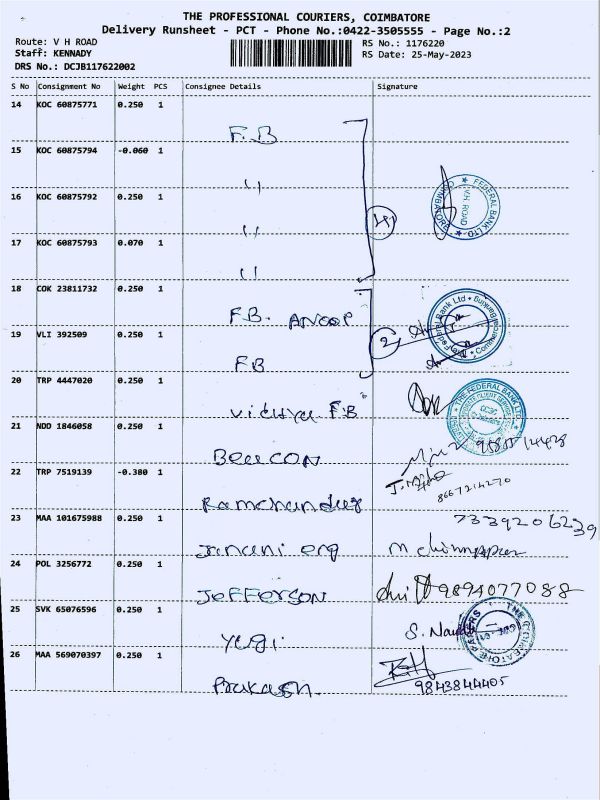 THE PROFESSIONAL COURIERS, COIMBATORE
Delivery Runsheet - PCT - Phone No.:0422-3505555 - Page No.:2
Route: V H ROAD
Staff: KENNADY
DRS No.: DCJB117622002
RS No.: 1176220
RS Date: 25-May-2023
S No Consignment No Weight PCS Consignee Details Signature
14 KOC 60875771 0.250 1
F.B
15 KOC 60875794 -0.060 1
"
16 KOC 60875792 0.250 1
"
17 KOC 60875793 0.070 1
"
FEDERAL BANK LTD. COIMBATORE
V.H. ROAD
18 COK 23811732 0.250 1
F.B. ANOOP
19 VLI 392509 0.250 1
FB
2
20 TRP 4447020 0.250 1
Vidhya F.B
THE FEDERAL BANK LTD.
21 NDD 1846058 0.250 1
Beecon
22 TRP 7519139 -0.380 1
8667214270
23 MAA 101675988 0.250 1
7339206239
Janani erg
24 POL 3256772 0.250 1
Jefferson 9894077088
25 SVK 65076596 0.250 1
Yugi.
26 MAA 569070397 0.250 1
Prakash. 9843844405